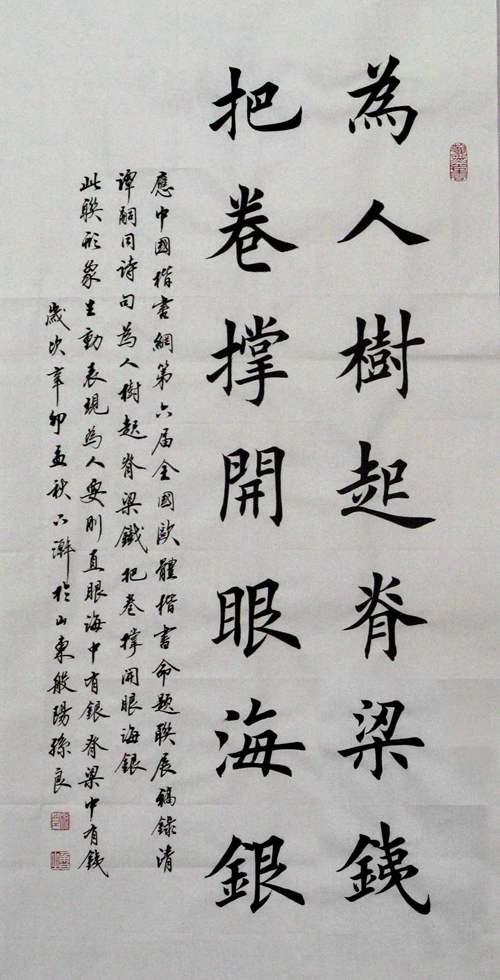 為人樹起脊梁銕
把卷撑開眼海銀
應中國楷書網第六届全國歐體楷書命題聯展稿錄清
譚嗣同詩句為人樹起脊梁鐵把卷撑開眼海銀
此聯形象生動表現為人要剛直眼海中有銀脊梁中有銕
歲次辛卯孟秋下澣於山東般陽孫良